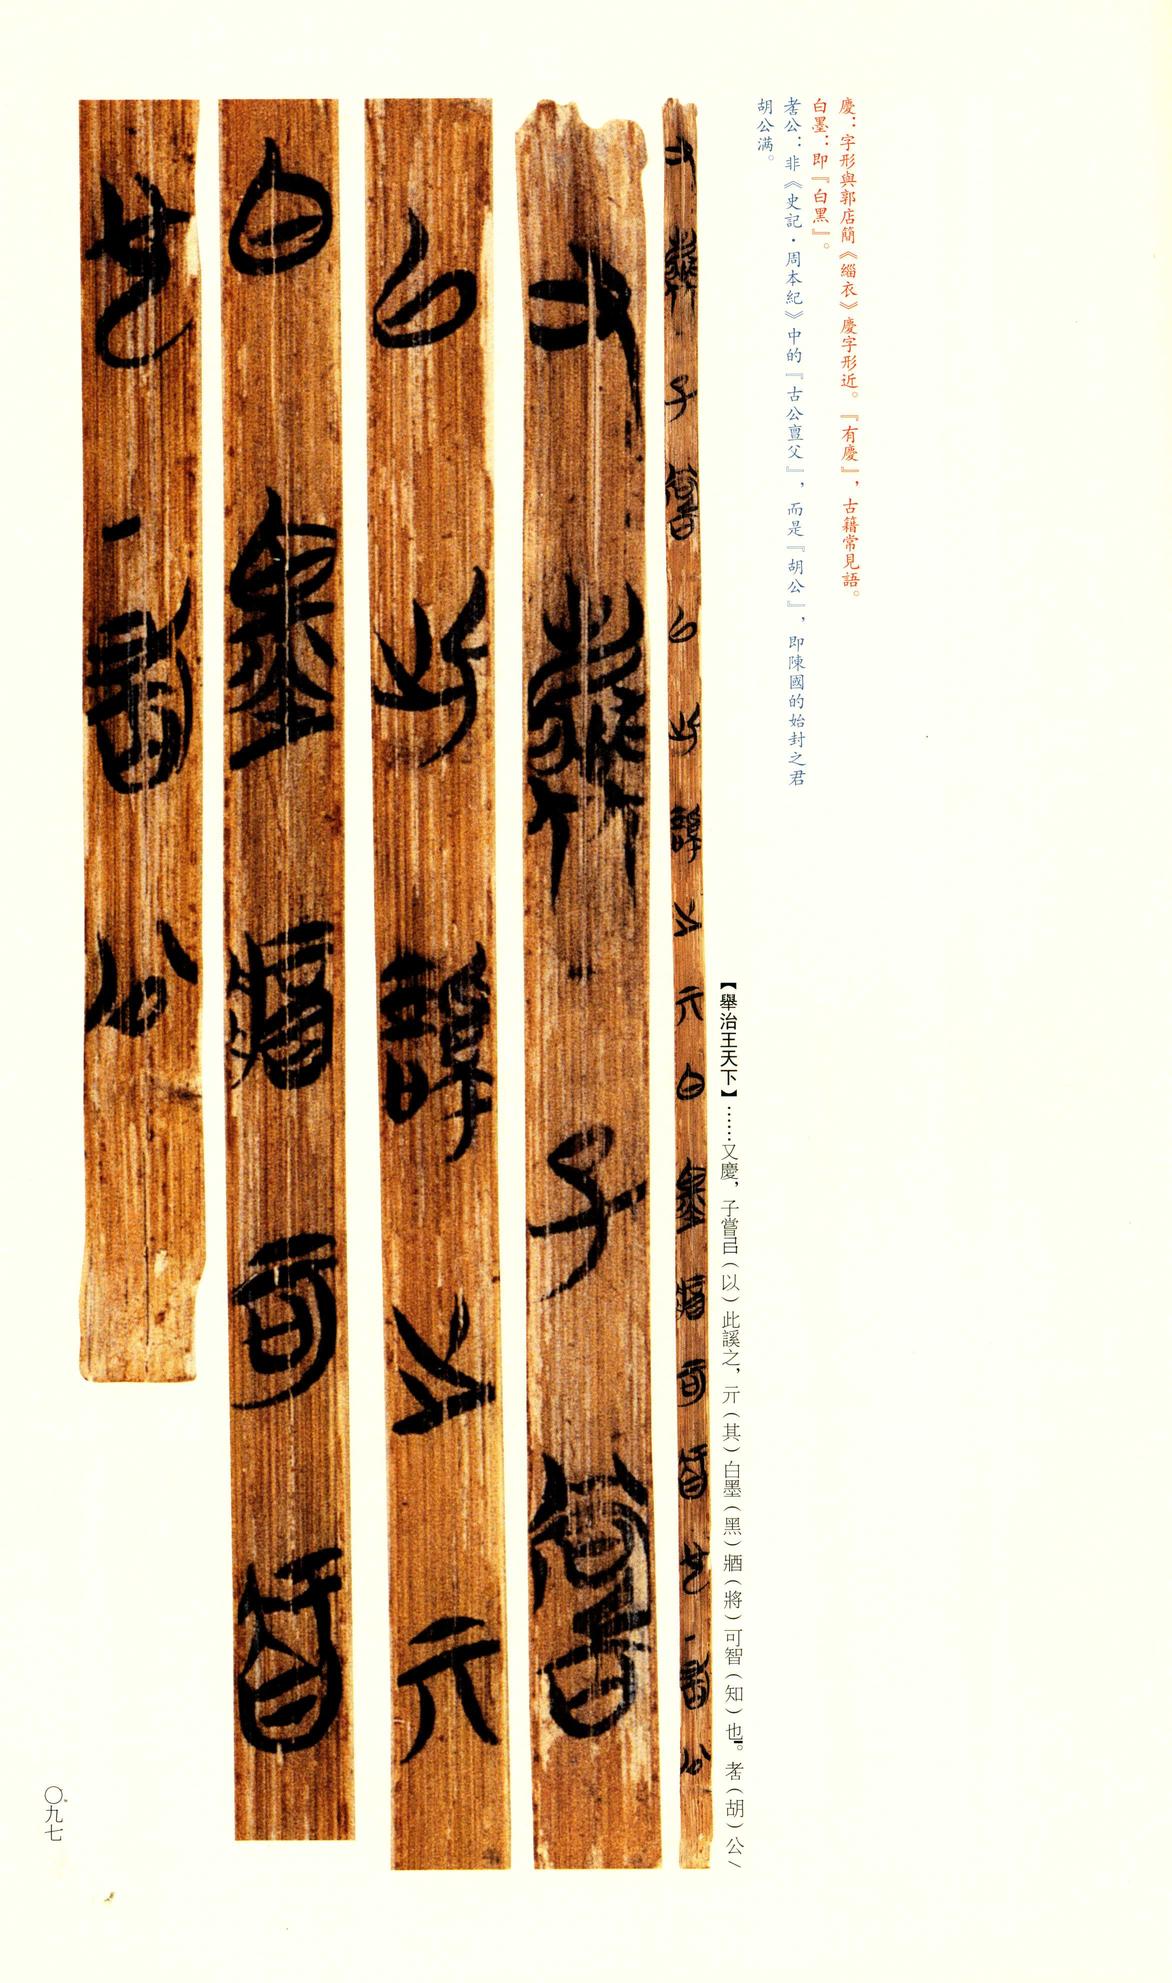 慶：字形與郭店簡《緇衣》慶字形近。『有慶』，古籍常見語。
白墨：即『白黑』。
耆公：非《史記·周本紀》中的『古公亶父』，而是『胡公』，即陳國的始封之君
胡公滿。
【舉治王天下】……又慶，子嘗㠯（以）此謑之，亓（其）白墨（黑）牆（將）可智（知）也。耆（胡）公╲
又慶子嘗
㠯此謑之亓
白墨可智
也公
〇九七